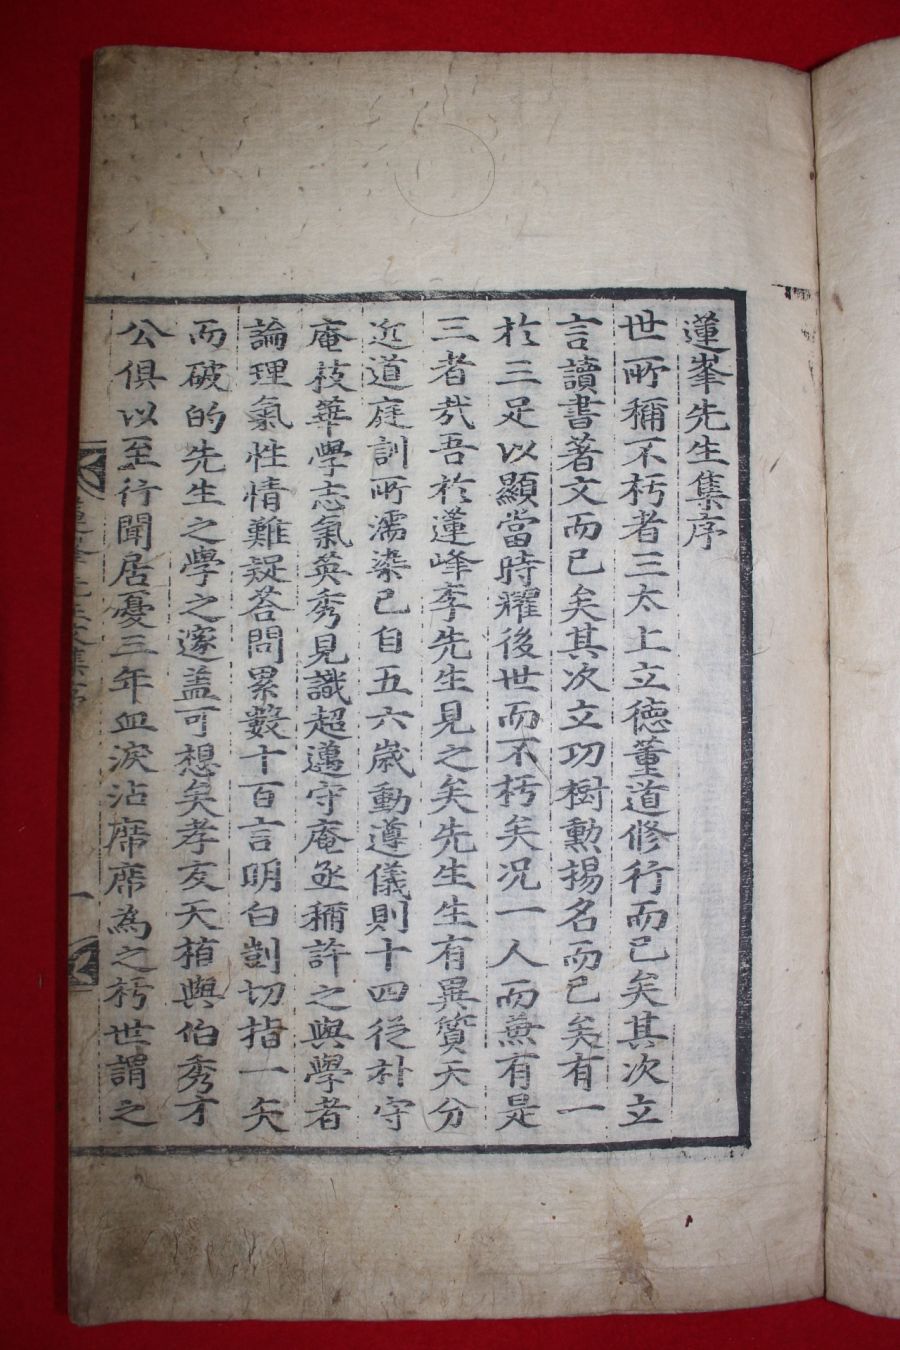 蓮峯先生集序
世所稱不朽者三太上立德董道修行而已矣其次立
言讀書著文而已矣其次立功樹勳揚名而已矣有一
於三足以顯當時耀後世而不朽矣况一人而兼有是
三者㢤吾於蓮峰李先生見之矣先生生有異質天分
近道庭訓所濡染已自五六歲動遵儀則十四從朴守
庵枝華學志氣英秀見識超邁守庵亟稱許之與學者
論理氣性情難疑答問累數十百言明白剴切指一矢
而破的先生之學之邃盖可想矣孝友天植與伯秀才
公俱以至行聞居憂三年血淚沾席席為之朽世謂之